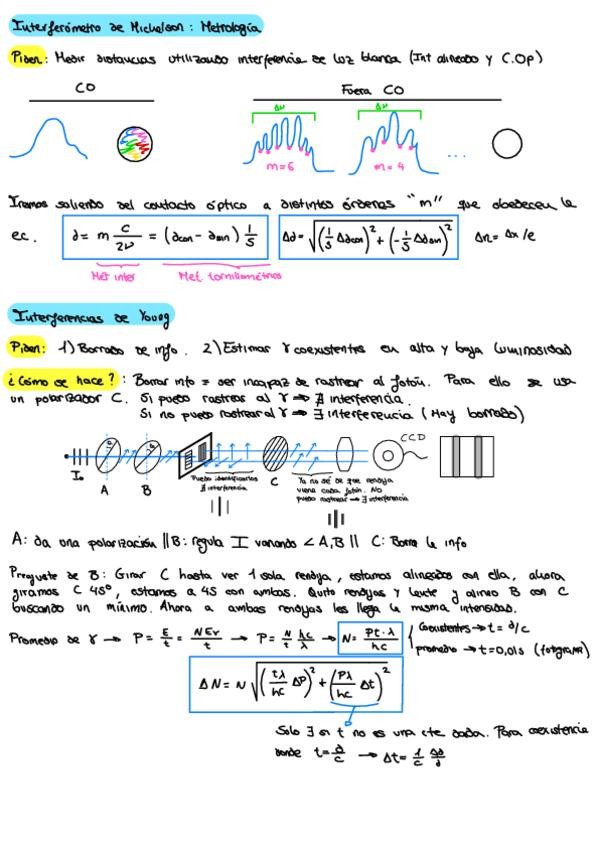 Interferómetro de Michelson: Metrología
Piden: Medir distancias utilizando interferencia de luz blanca (Int alineado y C.Op)
CO
Fuera CO
Δν Δν
m=6 m=4 ...
Iremos saliendo del contacto óptico a distintos órdenes "m" que obedecen la
ec. d = m c/2ν = (dcon - dsin) 1/5 Δd = √((1/5 Δdcon)² + (-1/5 Δdsin)²) Δn = Δx/e
Met inter Met. tornillométrico
Interferencias de Young
Piden: 1) Borrado de info. 2) Estimar γ coexistentes en alta y baja luminosidad
¿Cómo se hace?: Borrar info = ser incapaz de rastrear al fotón. Para ello se usa
un polarizador C. Si puedo rastrear al γ ⇒ ∄ interferencia.
Si no puedo rastrear al γ ⇒ ∃ interferencia (Hay borrado)
CCD
I₀ A B C
Puedo identificarlos
∄ interferencia
Ya no sé de que rendija
viene cada fotón. No
puedo rastrear → ∃ interferencia
A: da una polarización || B: regula I variando ∠A,B || C: Borra la info
Preajuste de B: Girar C hasta ver 1 sola rendija, estamos alineados con ella, ahora
giramos C 45º, estamos a 45 con ambas. Quito rendijas y lente y alineo B con C
buscando un mínimo. Ahora a ambas rendijas les llega la misma intensidad.
Promedio de γ → P = E/t = NEγ/t → P = N/t hc/λ → N = Pt·λ/hc
Coexistentes → t = d/c
promedio → t = 0,01s (fotograma)
ΔN = N √((tλ/hc ΔP)² + (Pλ/hc Δt)²)
Solo ∃ si t no es una cte dada. Para coexistencia
donde t = d/c → Δt = 1/c Δd/d